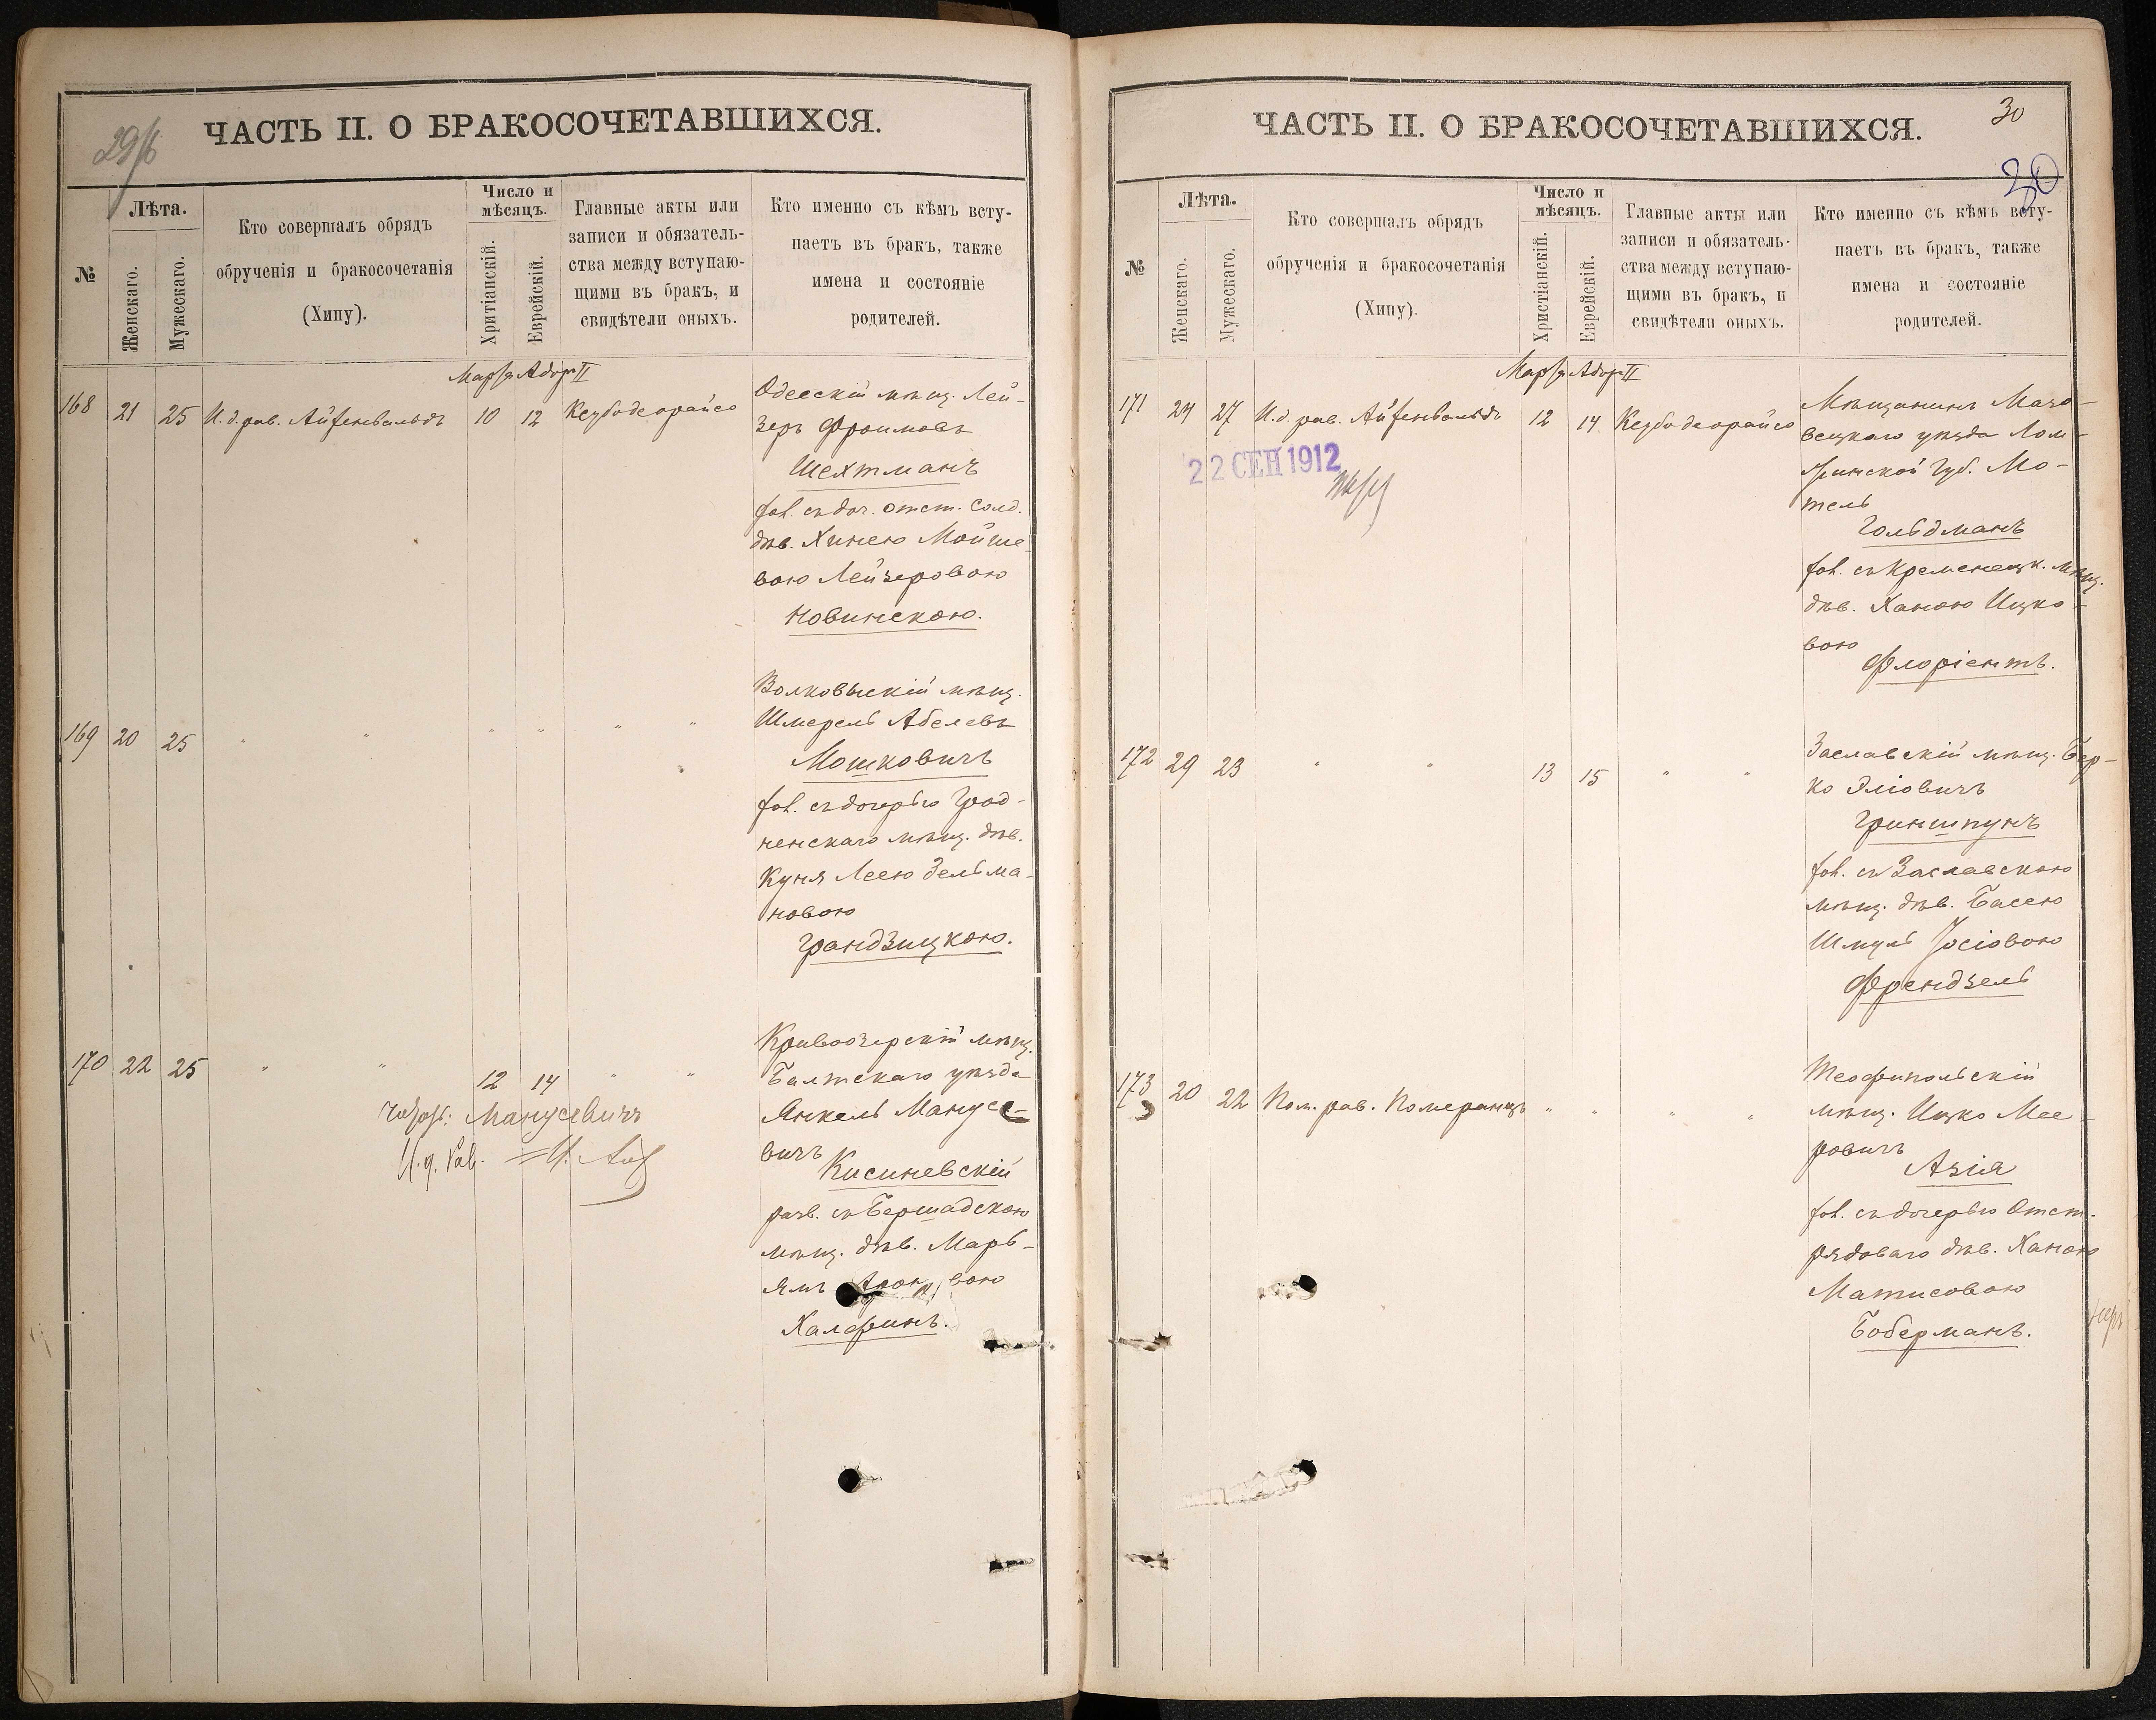 29/б
ЧАСТЬ II. О БРАКОСОЧЕТАВШИХСЯ.
№
Лѣта.
Женскаго.
Мужескаго.
Кто совершалъ обрядъ
обрученія и бракосочетанія
(Хипу).
Число и
мѣсяцъ.
Хритіанскій.
Еврейскій.
Главные акты или
записи и обязатель-
ства между вступаю-
щими въ бракъ, и
свидѣтели оныхъ.
Кто именно съ кѣмъ всту-
паетъ въ бракъ, также
имена и состояніе
родителей.
Марта Адоръ II
168 21 25 И. д. рав. Айзенвальдъ 10 12 Кезубодеорайсо
Одесскій мѣщ. Лей-
зеръ Фроимовъ
Шехтманъ
хол. съ доч. отст. солд.
дѣв. Хинею Мойше-
вою Лейзеровою
Новинскою.
169 20 25 " " " " " "
Волковыскій мѣщ.
Шмерель Абелевъ
Мошковичъ
хол. съ дочерью Грод-
ненскаго мѣщ. дѣв.
Куня Леею Зельма-
новою
Грандзицкою.
170 22 25 " " 12 14 " "
Кривоозерскій мѣщ.
Балтскаго уѣзда
Янкель Манусе-
вичъ
Кисиневскій
разв. съ Бершадскою
мѣщ. дѣв. Марь-
ямъ вою
Халфинъ.
Манусевичъ
И. д. рав.
ЧАСТЬ II. О БРАКОСОЧЕТАВШИХСЯ.
30
30
№
Лѣта.
Женскаго.
Мужескаго.
Кто совершалъ обрядъ
обрученія и бракосочетанія
(Хипу).
Число и
мѣсяцъ.
Христіанскій.
Еврейскій.
Главные акты или
записи и обязатель-
ства между вступаю-
щими въ бракъ, и
свидѣтели оныхъ.
Кто именно съ кѣмъ всту-
паетъ въ бракъ, также
имена и состояніе
родителей.
Марта Адоръ II
171 24 27 И. д. рав. Айзенвальдъ 12 14 Кезубодеорайсо
22 СЕН 1912
Мѣщанинъ Мазо-
вецкаго уѣзда Лом-
жинской губ. Мо-
тель
Гольдманъ
хол. съ Кременецк. мѣщ.
дѣв. Ханою Ицко-
вою
Флоріентъ.
172 29 23 " " 13 15 " "
Заславскій мѣщ. Бер-
ко Эліовичъ
Гриншпунъ
хол. съ Заславскою
мѣщ. дѣв. Басею
Шмуль Іосіовою
Френдзель
173 20 22 Пом. рав. Померанцъ " " " "
Теофипольскій
мѣщ. Ицко Мее-
ровичъ
Азія
хол. съ дочерью Отст.
рядоваго дѣв. Ханою
Матисовою
Боберманъ.